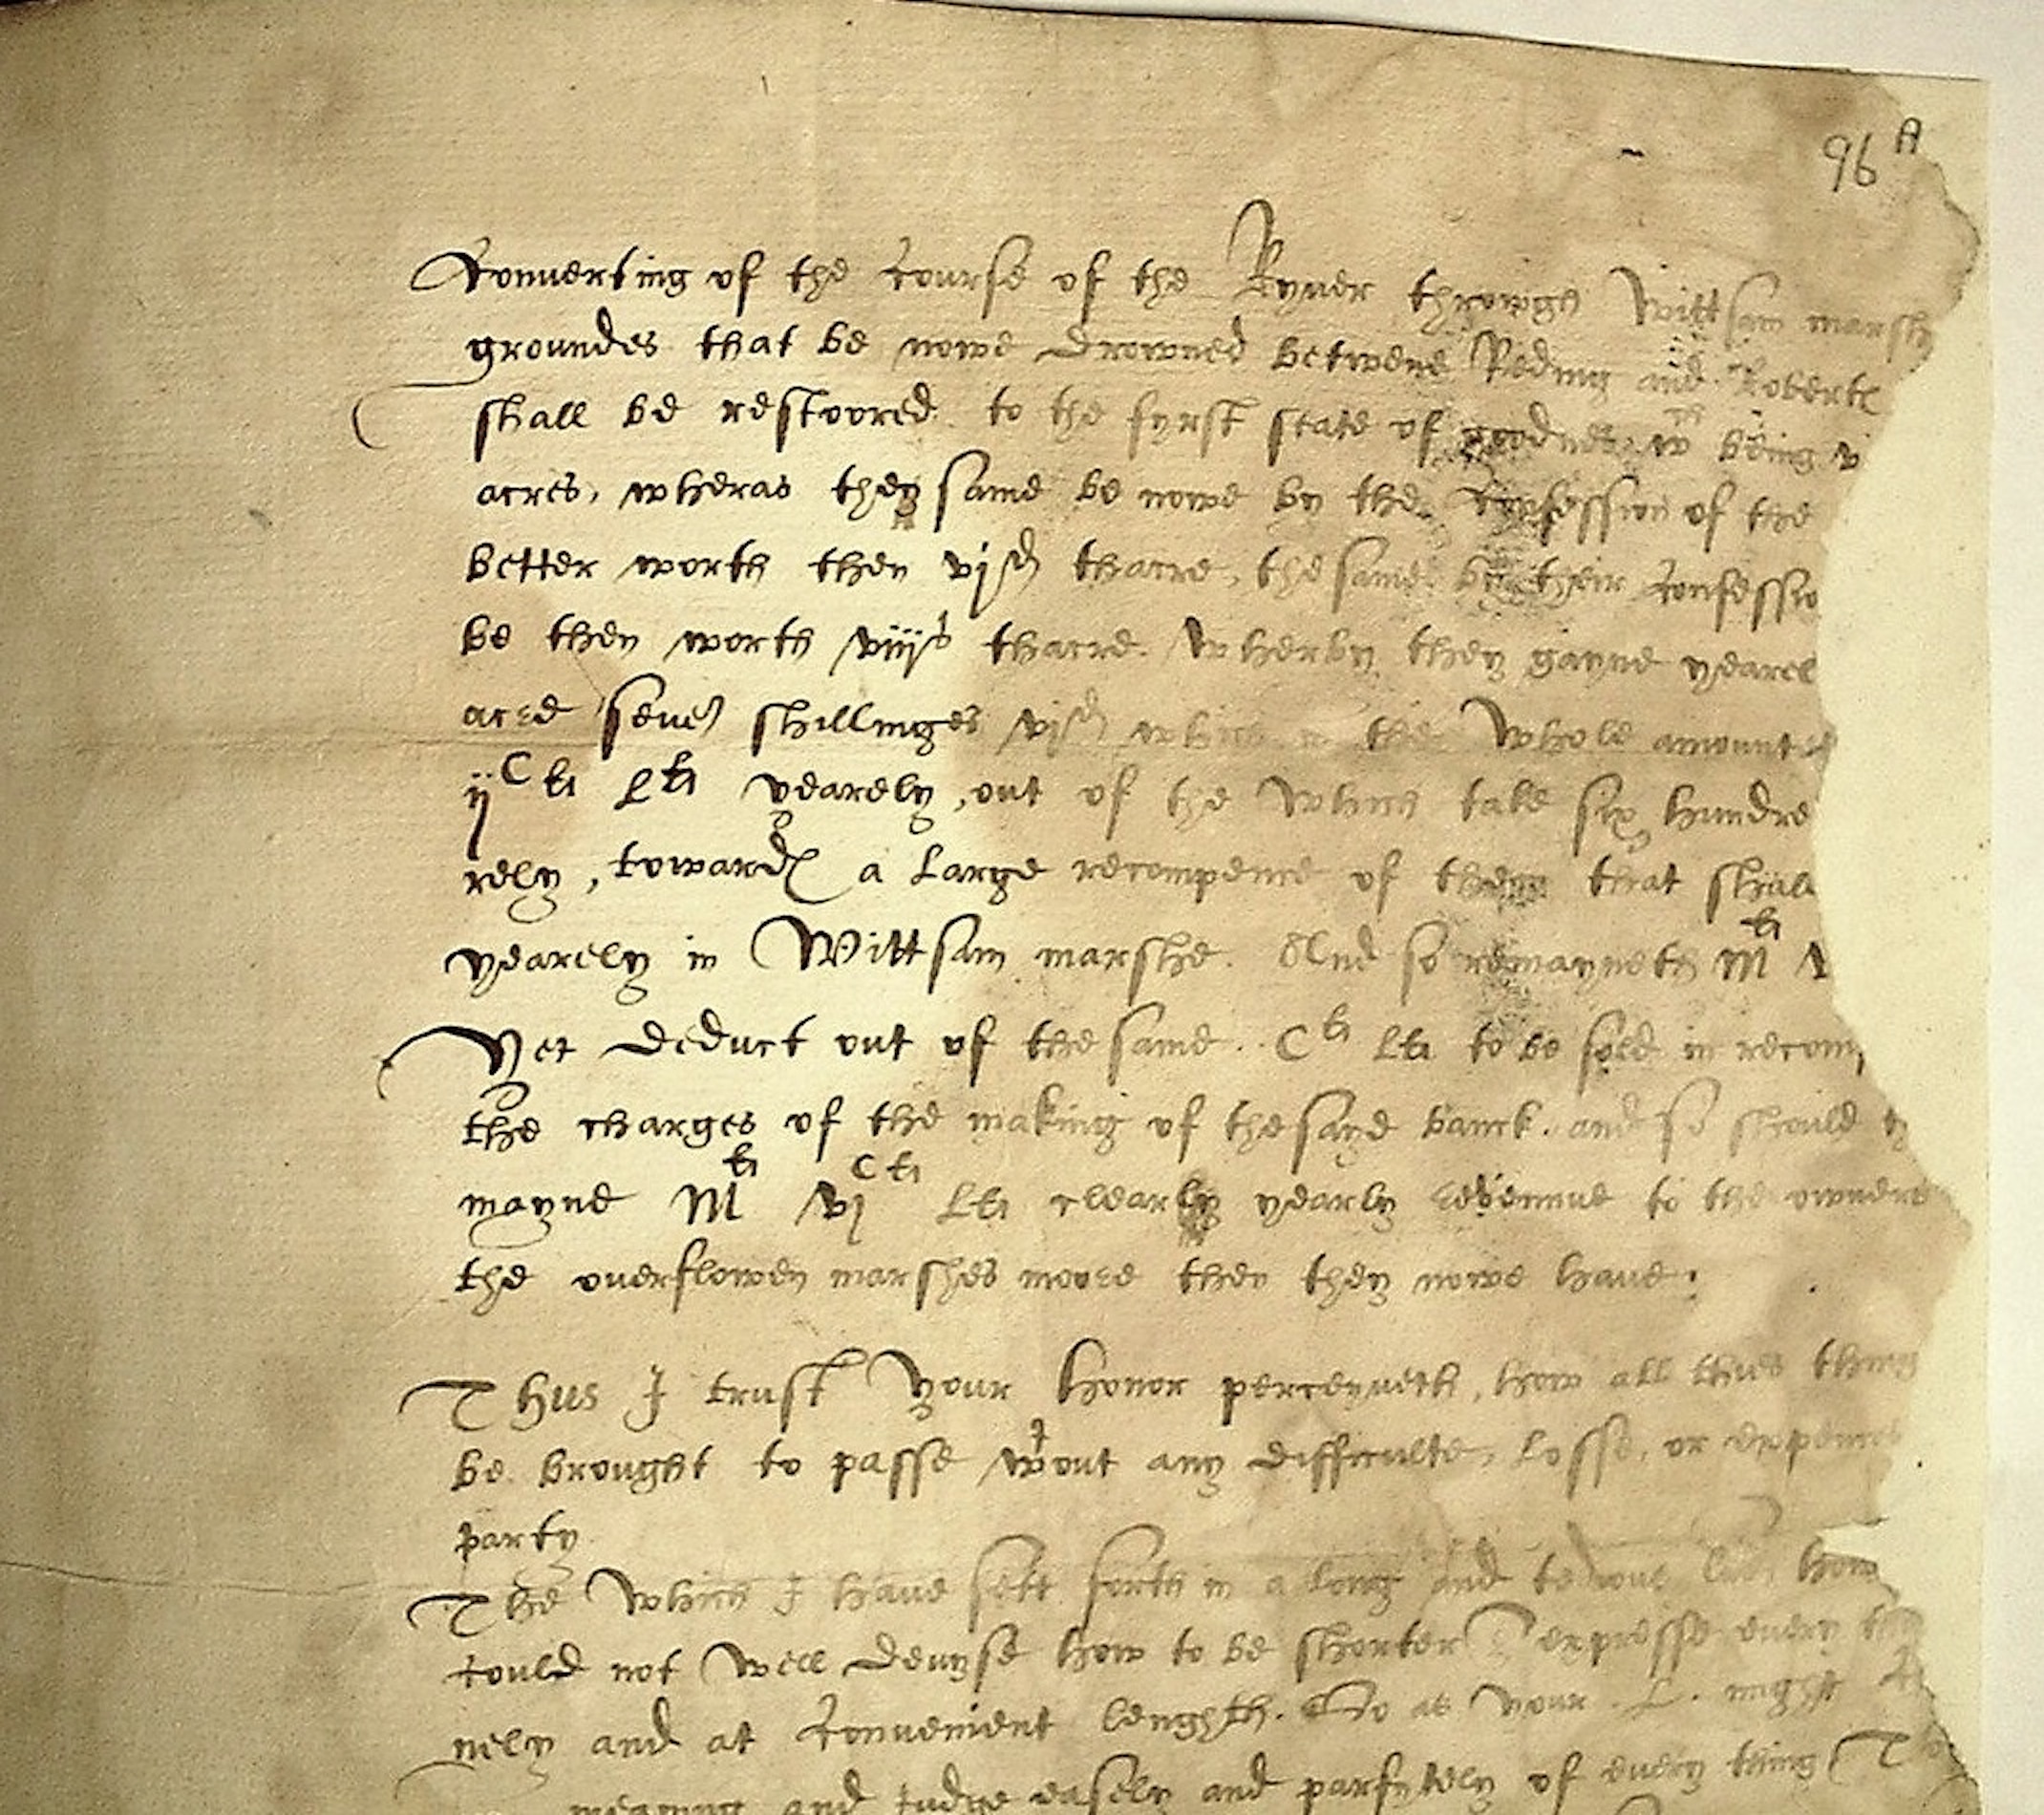 96 A
Converting of the Course of the Ryver throwgh Wittsam marsh
groundes that be nowe drowned betwene Reding and Robert
shall be restoored to the fyrst state of goodnes wch being v
acres, wheras they same be nowe by the Confession of the
better worth then vjd thacre, the same by their Confessio
be then worth viijs thacre. Wherby they gayne yearel
acre seven shillinges vjd which in the Whole amounte
ijC li L li yearely, out of the Which take six hundre
rely, towardes a Large recompence of them that shall
yearely in Wittsam marshe. And so remayneth M li v
Yet deduct out of the same. C li L li to be sold in recom
the charges of the making of the sayd banck. and so should
mayne M li vj C li L li clearly yearly revennue to the owners
the overflowen marshes moore then they nowe have:
Thus I trust your honor perceyveth, how all this thing
be brought to passe wt out any difficulte, Losse, or expences
party
The Which I have sett forth in a long and tedious how
Could not well devyse how to be shorter expresse every thi
nely and at Convenient Lenghth. So as your .L. might
meaning and Judge easely and parfytely of every thing